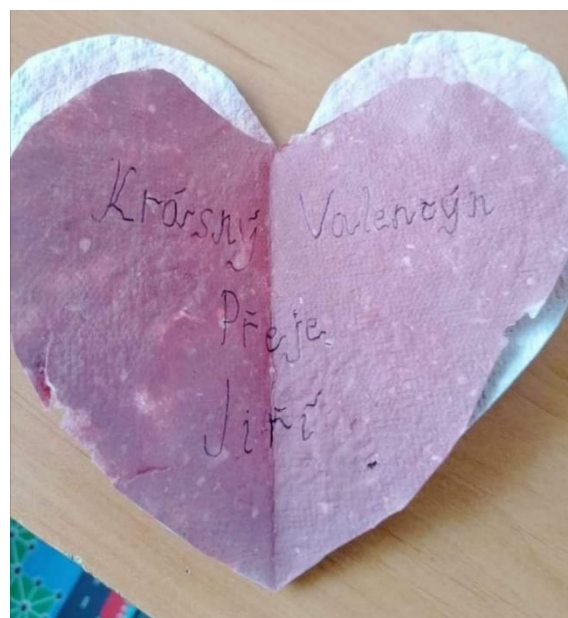 Krásný Valentýn
Přeje
Jiří